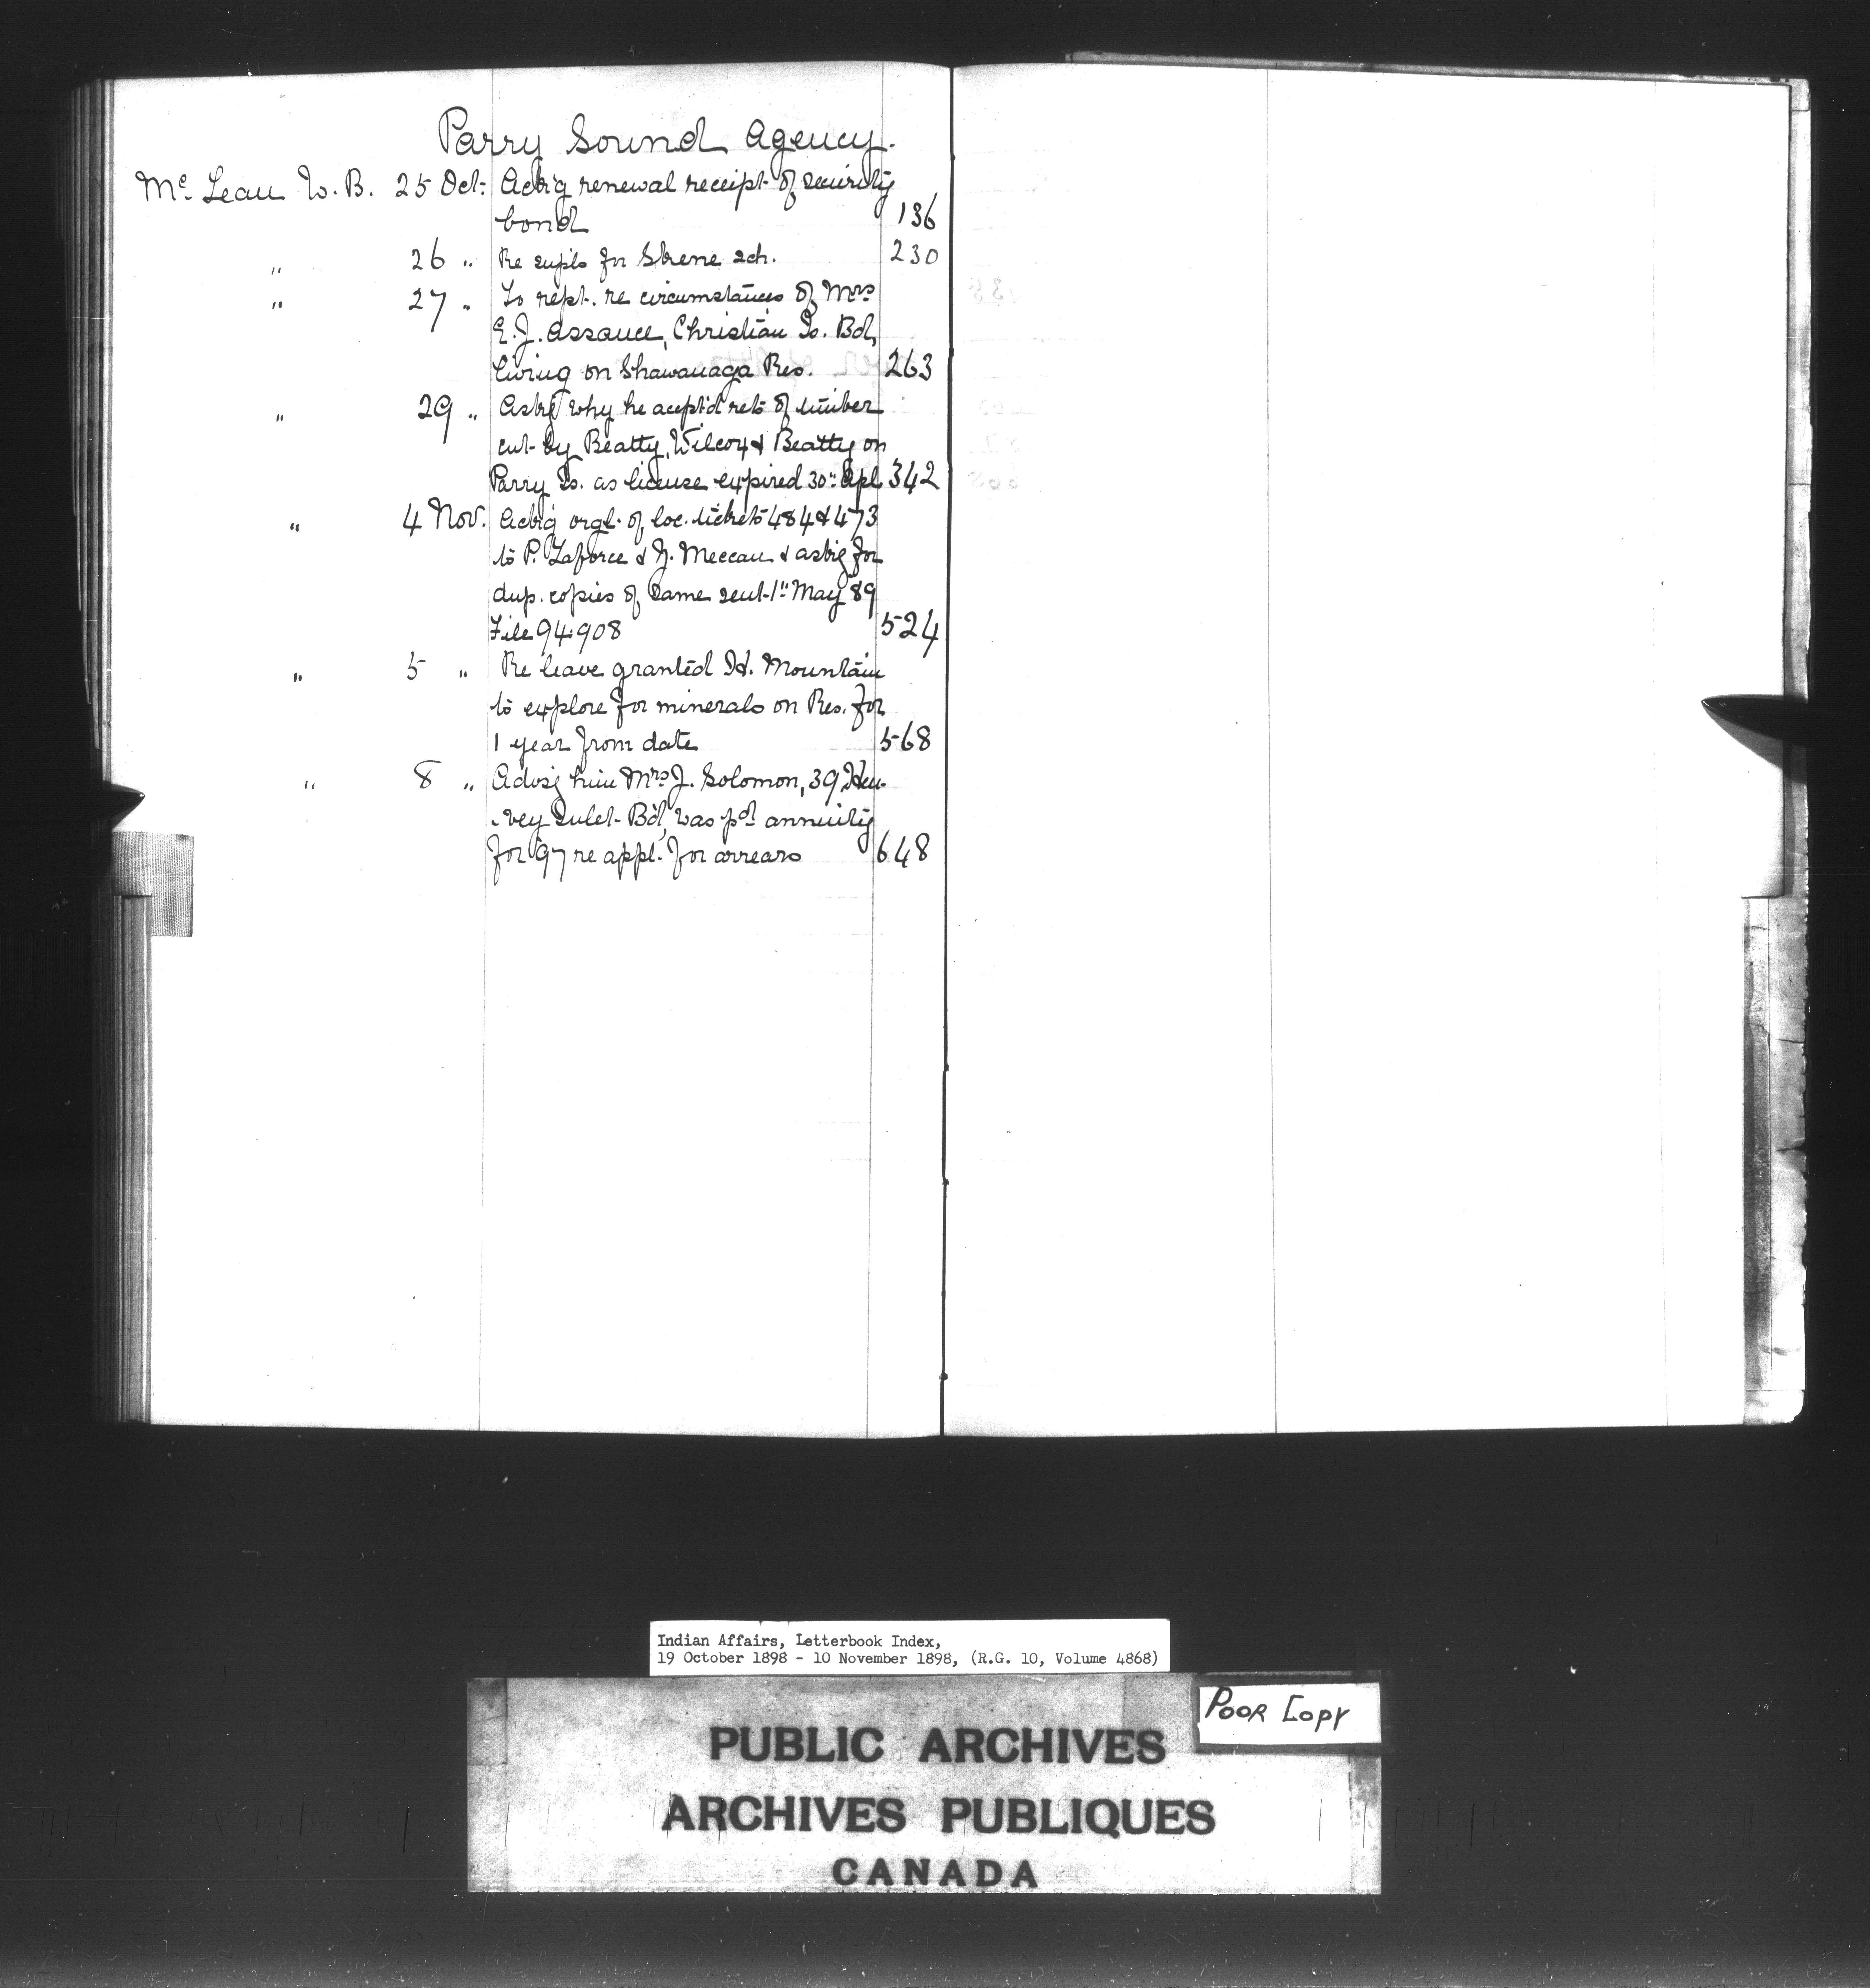 Parry Sound Agency.
Mc Lean W. B. 25 Oct: Ackg renewal receipt of security
bond 136
" 26 " Re supls for Skene sch. 230
" 27 " To rept. re circumstances of Mrs
E. J. Assance, Christian Is. Bd,
living on Shawanaga Res. 263
" 29 " Askg why he acept'd rets of timber
cut by Beatty, Wilcox & Beatty on
Parry Is. as license expired 30th Apl 342
" 4 Nov. Ackg orgl. of loc. tickets 484 & 473
to P. Laforce & J. Meccau & askg for
dup. copies of same sent 1st May 89
File 94.908 524
" 5 " Re leave granted H. Mountain
to explore for minerals on Res. for
1 year from date 568
" 8 " Advsg him Mrs J. Solomon, 39 Hen-
-vey Inlet Bd, was pd annuity
for 97 re appl. for arrears 648
Indian Affairs, Letterbook Index,
19 October 1898 - 10 November 1898, (R.G. 10, Volume 4868)
Poor Copy
PUBLIC ARCHIVES
ARCHIVES PUBLIQUES
CANADA